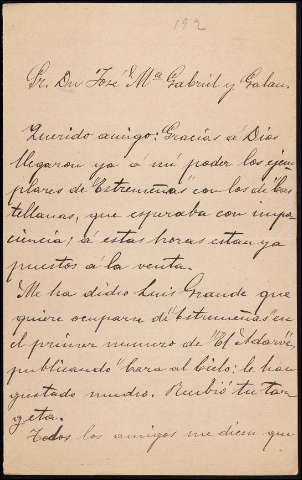 192
Sr. Dn José Ma Gabriel y Galan.
Querido amigo: Gracias á Dios
llegaron ya á mi poder los ejem-
plares de "Extremeñas" con los de Cas
tellanas, que esperaba con impa-
ciencia; á estas horas estan ya
puestos á la venta.
Me ha dicho Luis Grande que
quiere ocuparse de "Extremeñas" en
el primer numero de "El Adarve",
publicando "Cara al Cielo": le han
gustado mucho. Recibió tu tar-
geta.
Todos los amigos me dicen que